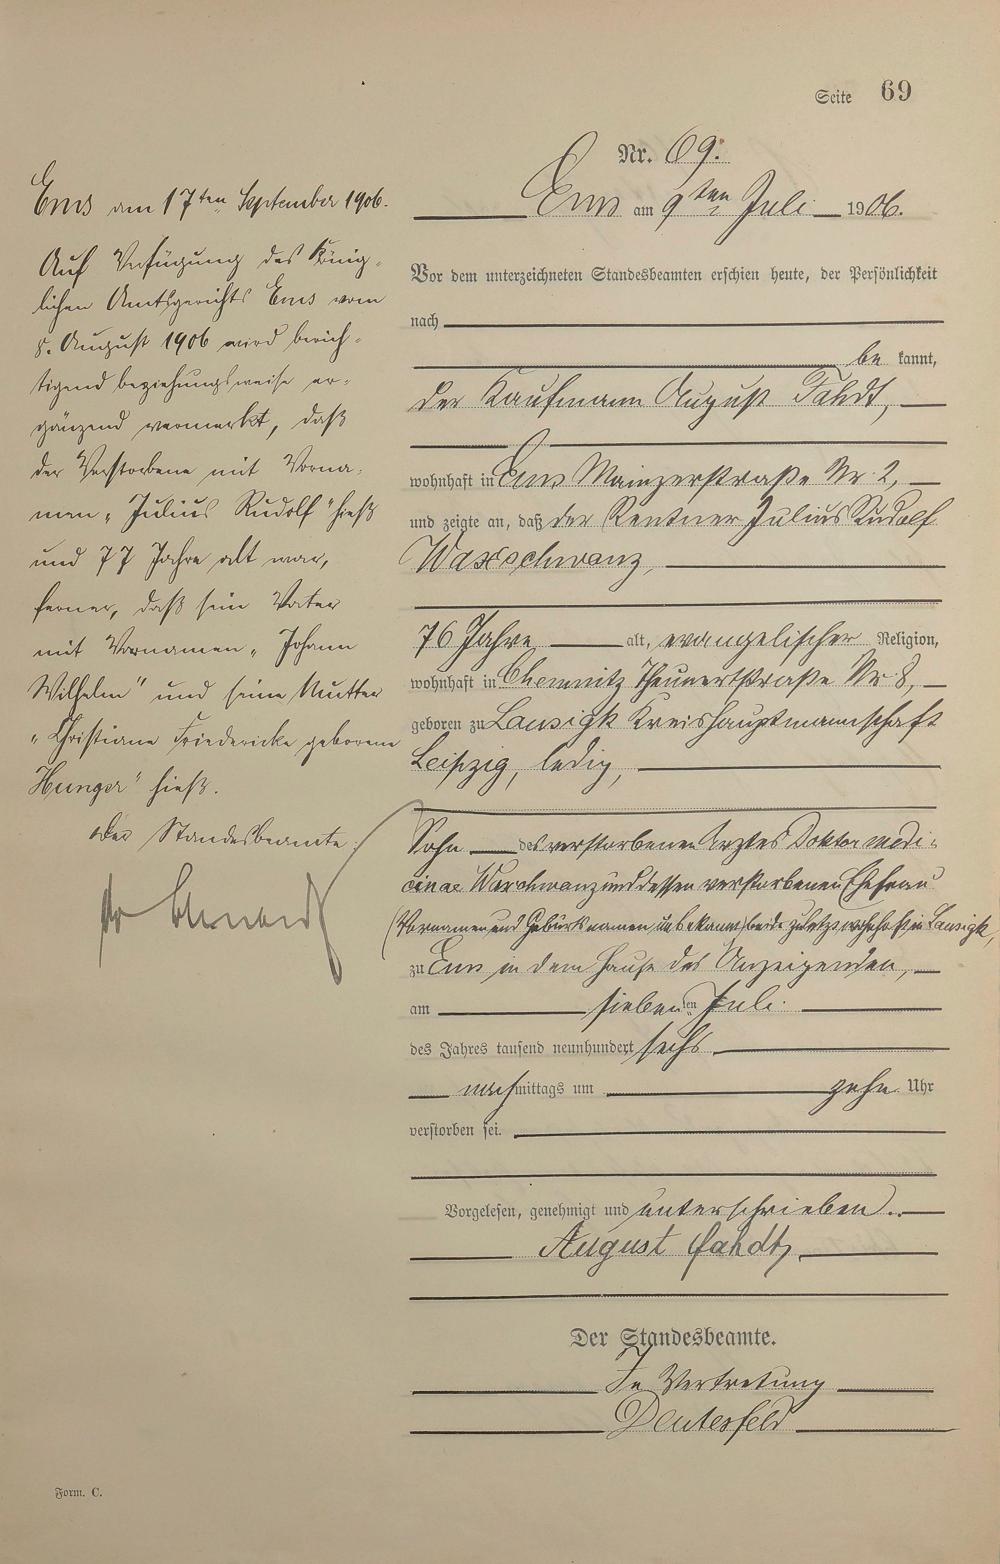 Seite 69
Nr. 69.
Ems am 9ten Juli 1906.
Vor dem unterzeichneten Standesbeamten erschien heute, der Persönlichkeit
nach
be kannt,
der Kaufmann August Fahdt,
wohnhaft in Ems Mainzerstraße Nr 2,
und zeigte an, daß der Rentner Julius Rudolf
Waxschwanz,
76 Jahre alt, evangelischer Religion,
wohnhaft in Chemnitz Theunertstraße Nr 8,
geboren zu Lausigk Kreishauptmannschaft
Leipzig, ledig,
Sohn des verstorbenen Arztes Doktor medi-
cinae Waxschwanz und dessen verstorbenen Ehefrau
(Vornamen und Geburtsnamen unbekannt) beide zuletzt wohnhaft in Lausigk,
zu Ems in dem Hause des Anzeigenden,
am siebenten Juli
des Jahres tausend neunhundert sechs
nachmittags um zehn Uhr
verstorben sei.
Vorgelesen, genehmigt und unterschrieben.
August Fahdt,
Der Standesbeamte.
In Vertretung
Deutesfeld
Ems am 17ten September 1906.
Auf Verfügung des König-
lichen Amtsgerichts Ems vom
8. August 1906 wird berich-
tigend beziehungsweise er-
gänzend vermerkt, daß
der Verstorbene mit Vorna-
men „Julius Rudolf" hieß
und 77 Jahre alt war,
ferner, daß sein Vater
mit Vornamen „Johann
Wilhelm" und seine Mutter
„Christiane Friedericke geborene
Hunger" hieß.
Der Standesbeamte:
Form. C.